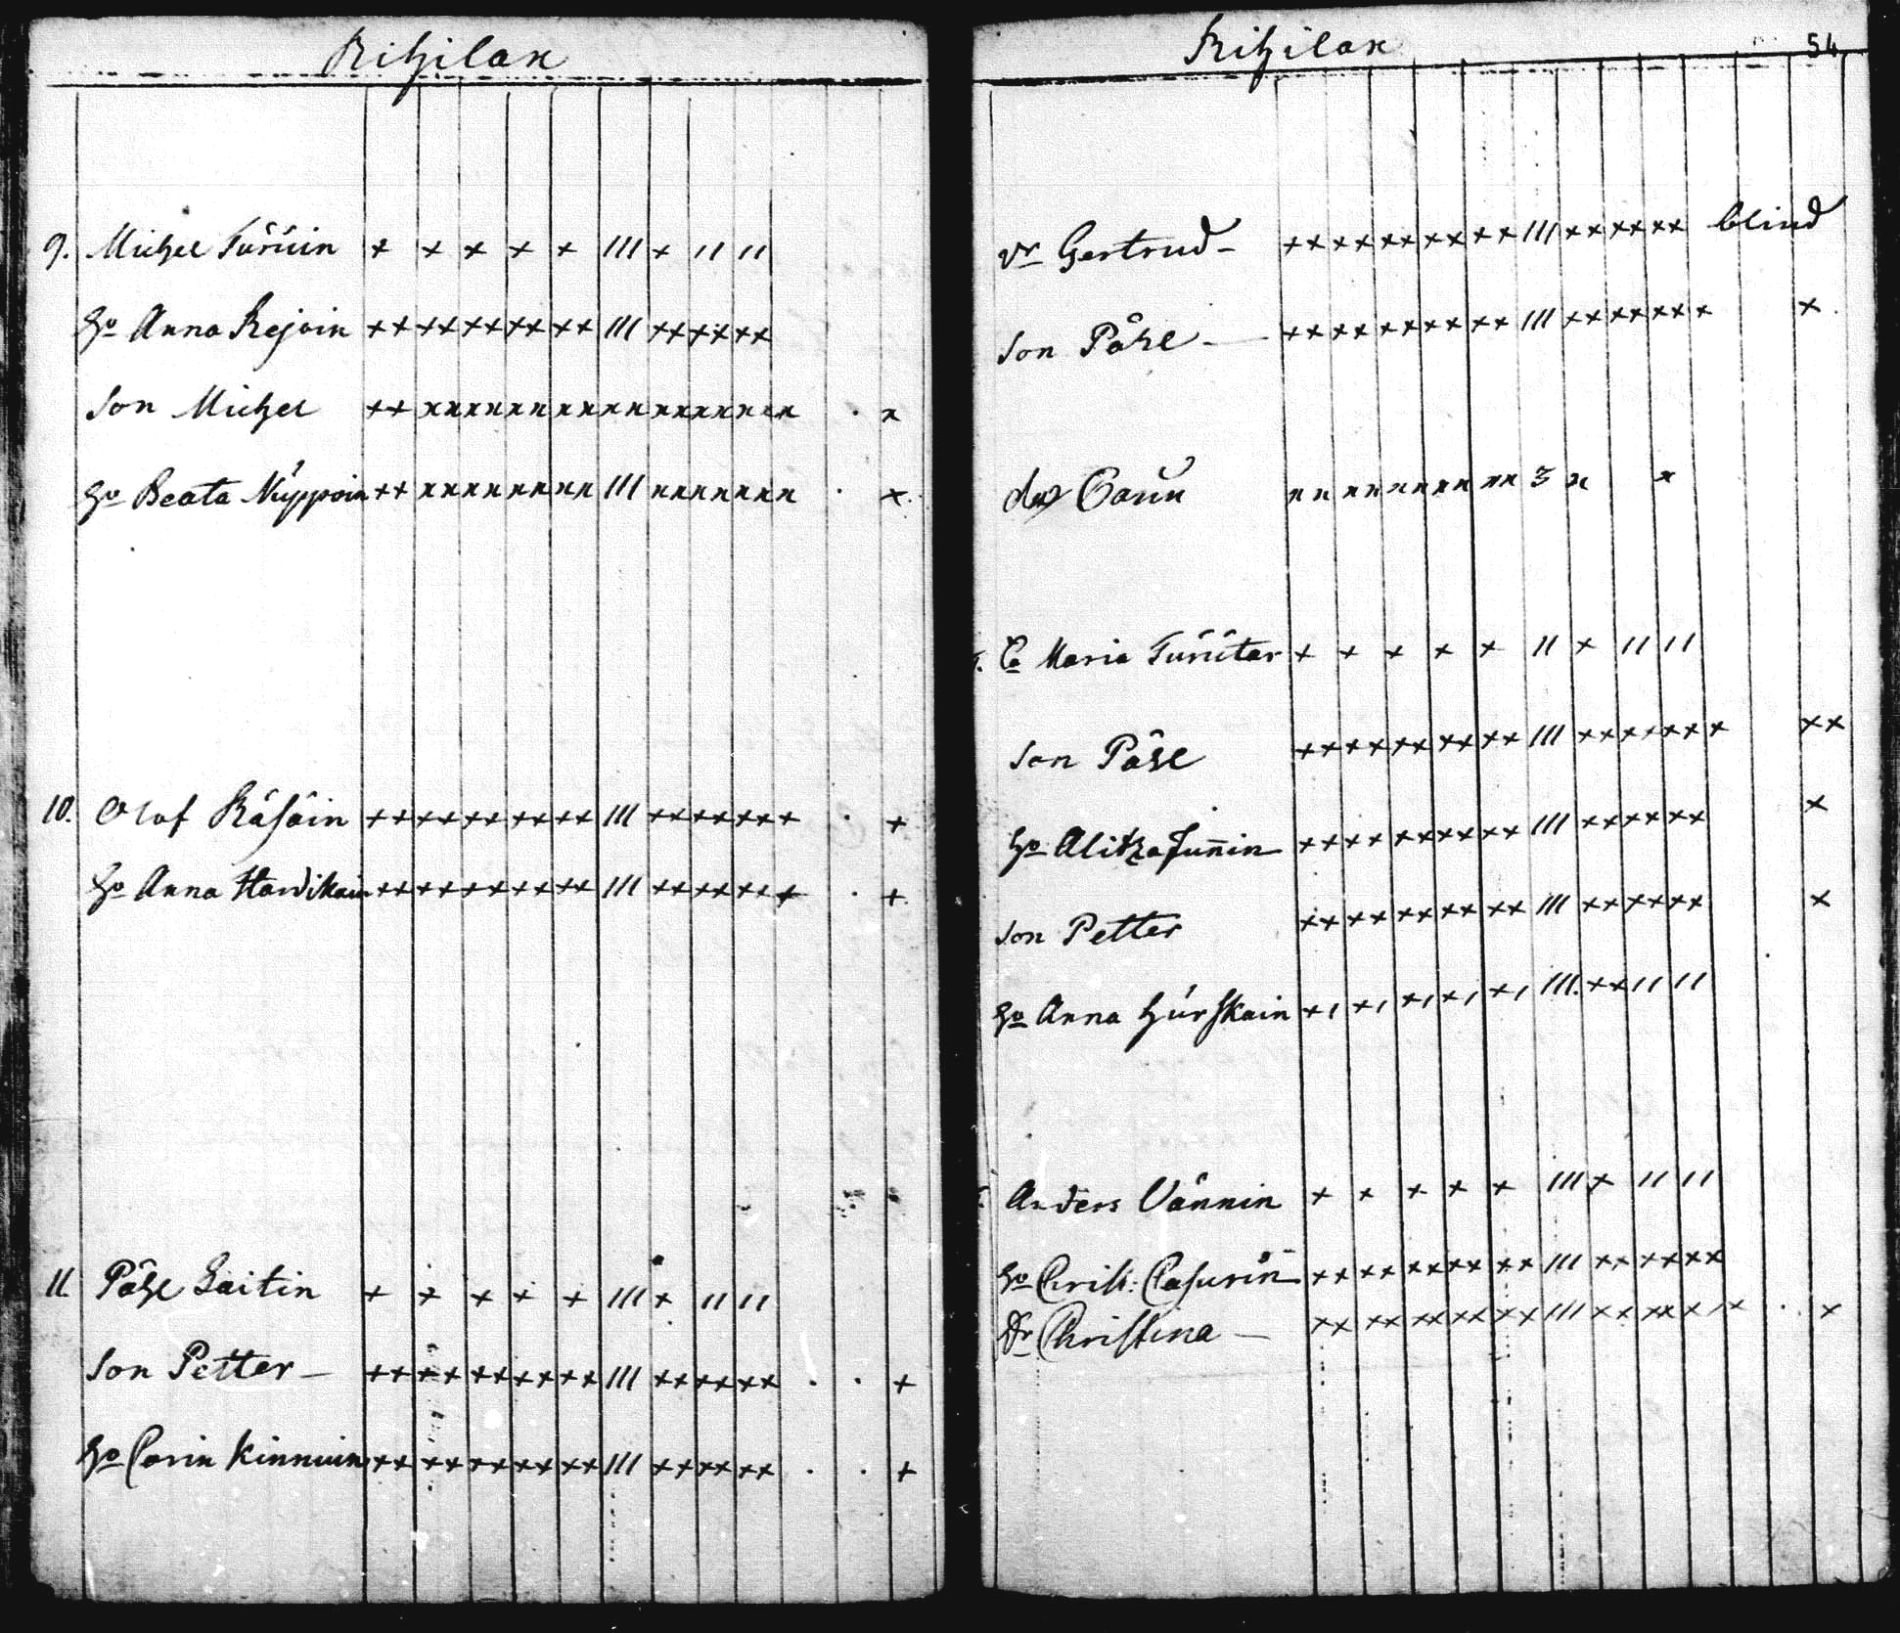 Rihilax
9. Michel Turuin + + + + + III + II II
ho Anna Rejoin ++ ++ ++ ++ ++ III ++ ++ ++
Son Michel ++ xx xx xx xx xx xx xx xx · x
ho Beata Nuppoin ++ xx xx xx xx III xx xx xx x · x
10. Olof Räsäin ++ ++ ++ ++ ++ III ++ ++ ++ + · +
ho Anna Havikain ++ ++ ++ ++ ++ III ++ ++ ++ + · +
11 Påhl Laitin + + + + + III + II II
Son Petter – ++ ++ ++ ++ ++ III ++ ++ ++ · · +
ho Carin Kinnuin ++ ++ ++ ++ ++ III ++ ++ ++ · · +
Rihilax 54
Gertrud – ++ ++ ++ ++ ++ III ++ ++ ++ blind
Son Påhl – ++ ++ ++ ++ ++ III ++ ++ ++ + +
Carin xx xx xx xx xx 3 x x
Maria Turutar + + + + + II + II II
Son Påhl ++ ++ ++ ++ ++ III ++ ++ ++ + ++
ho Alitza Junnin ++ ++ ++ ++ ++ III ++ ++ ++ +
Son Petter ++ ++ ++ ++ ++ III ++ ++ ++ +
ho Anna Hurskain +I +I +I +I +I III ++ II II
Anders Vännin + + + + + III + II II
ho Christ: Casurin ++ ++ ++ ++ ++ III ++ ++ ++
Dr Christina – ++ ++ ++ ++ ++ III ++ ++ ++ + · +